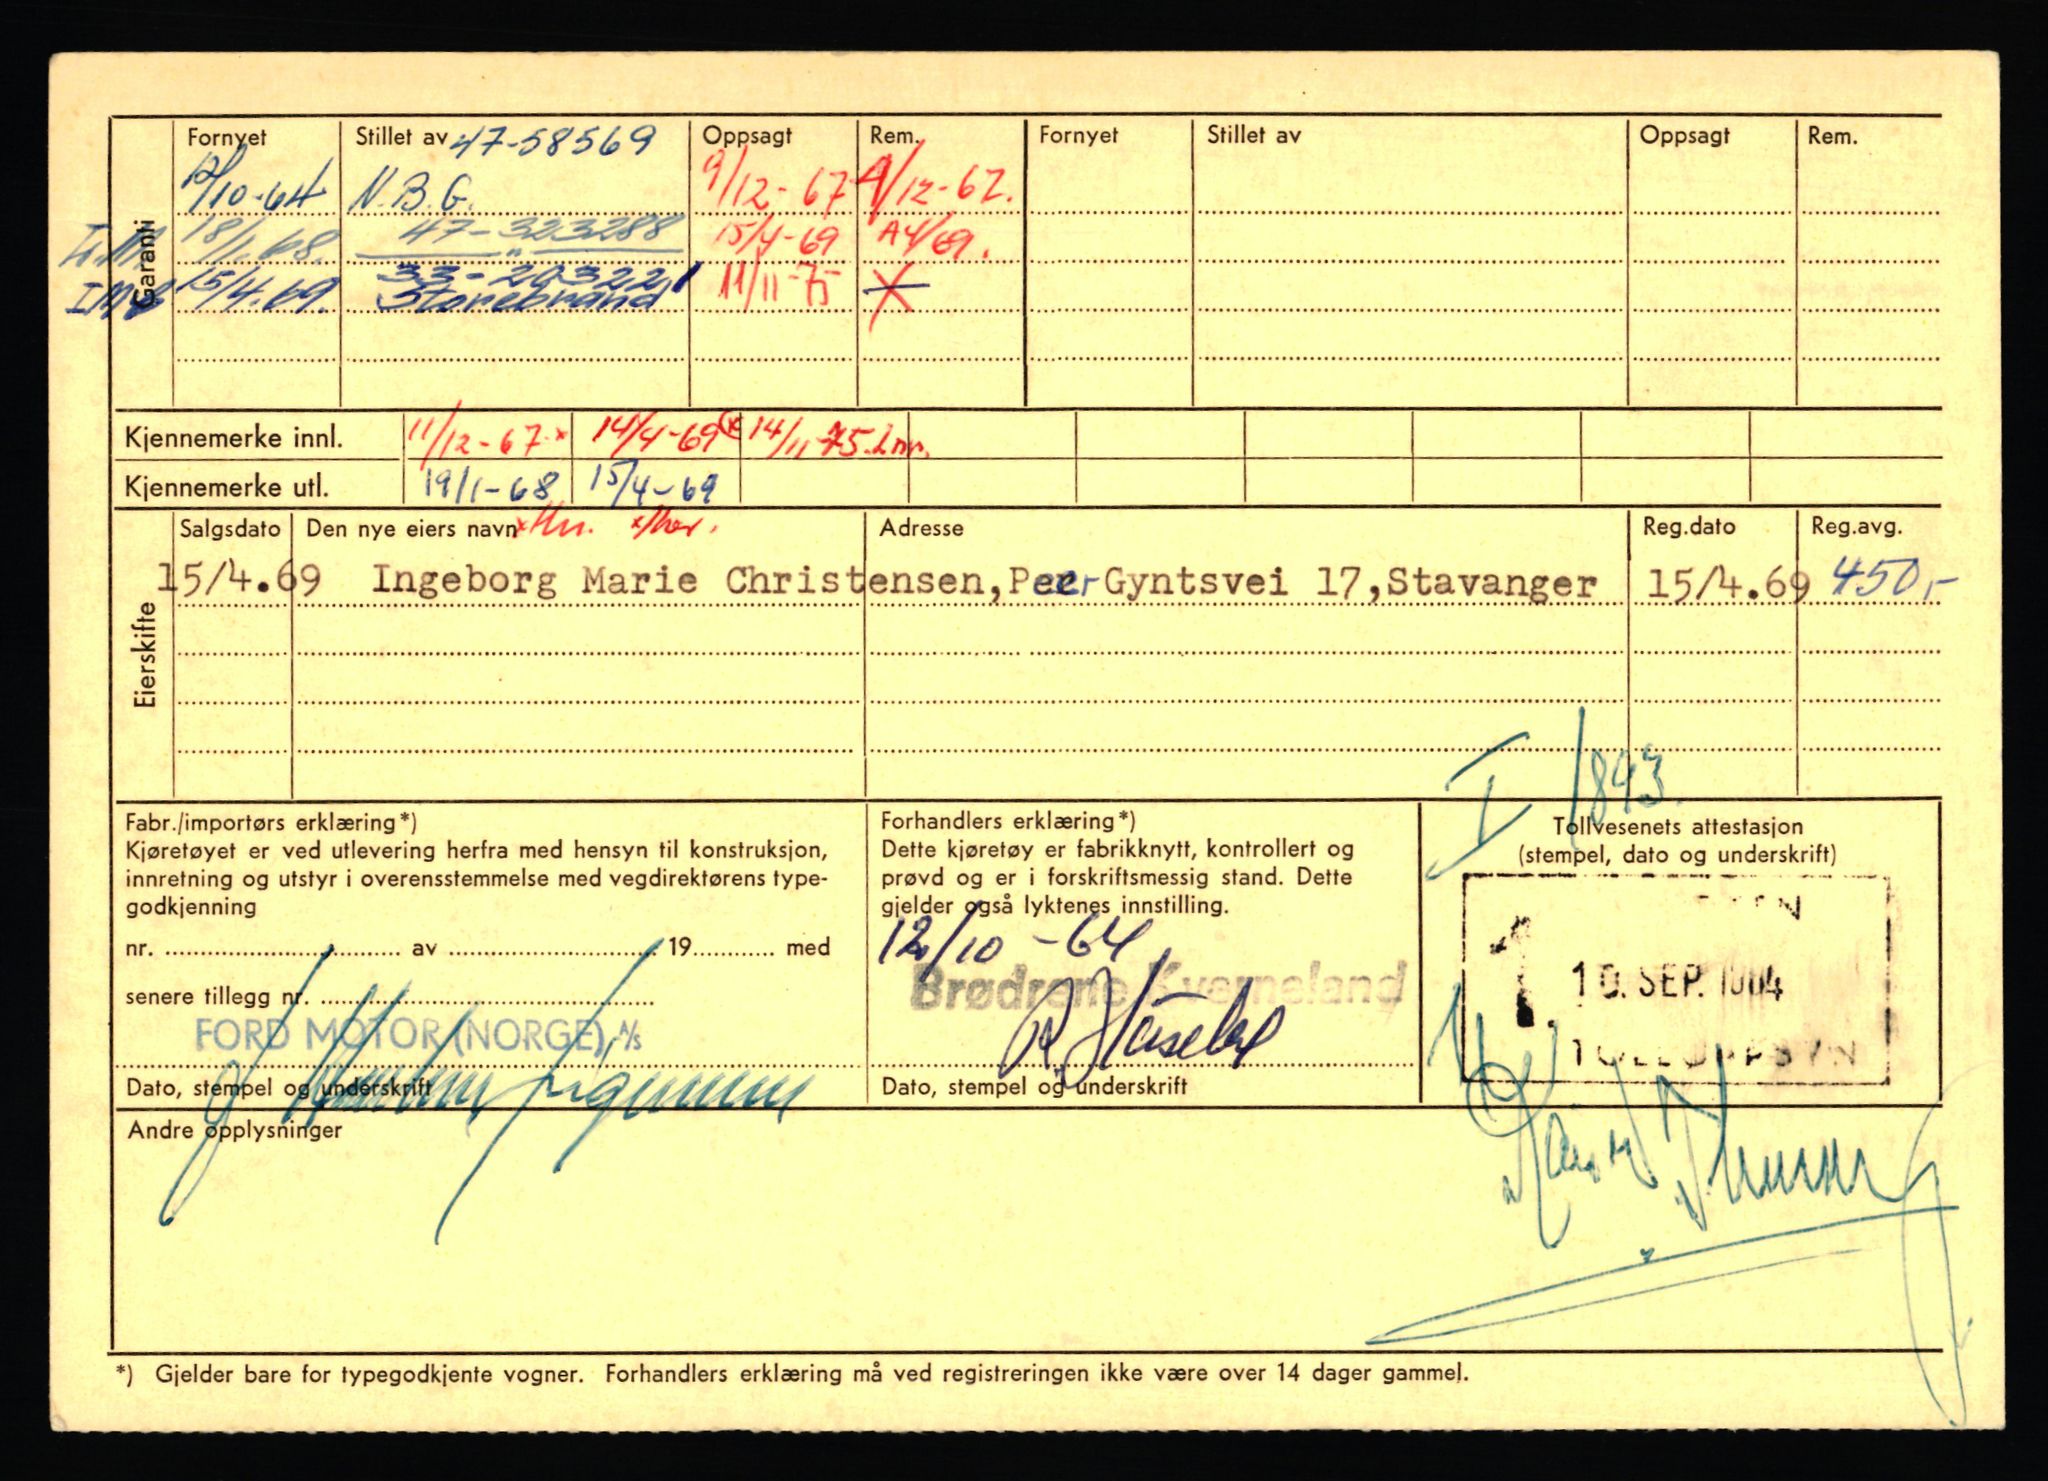 Garanti
Fornyet Stillet av 47-58569 Oppsagt Rem. Fornyet Stillet av Oppsagt Rem.
12/10-64 N.B.G. 9/12-67 9/12-67.
18/1.68. 47-323288 15/4-69 A4/69.
15/4.69. 33-203221 Storebrand 11/11-75 X
Kjennemerke innl. 11/12-67 x 14/4-69 (x 14/11-75.
Kjennemerke utl. 19/1-68 15/4-69
Eierskifte
Salgsdato Den nye eiers navn Adresse Reg.dato Reg.avg.
15/4.69 Ingeborg Marie Christensen, Peer Gyntsvei 17, Stavanger 15/4.69 450,-
I/1843.
Fabr./importørs erklæring*)
Kjøretøyet er ved utlevering herfra med hensyn til konstruksjon,
innretning og utstyr i overensstemmelse med vegdirektørens type-
godkjenning
nr. av 19 med
senere tillegg nr.
FORD MOTOR (NORGE) A/S
Dato, stempel og underskrift
Forhandlers erklæring*)
Dette kjøretøy er fabrikknytt, kontrollert og
prøvd og er i forskriftsmessig stand. Dette
gjelder også lyktenes innstilling.
12/10-64
Brødrene Kverneland
Dato, stempel og underskrift
Tollvesenets attestasjon
(stempel, dato og underskrift)
10. SEP. 1964
TOLLOPPSYN
Andre opplysninger
*) Gjelder bare for typegodkjente vogner. Forhandlers erklæring må ved registreringen ikke være over 14 dager gammel.